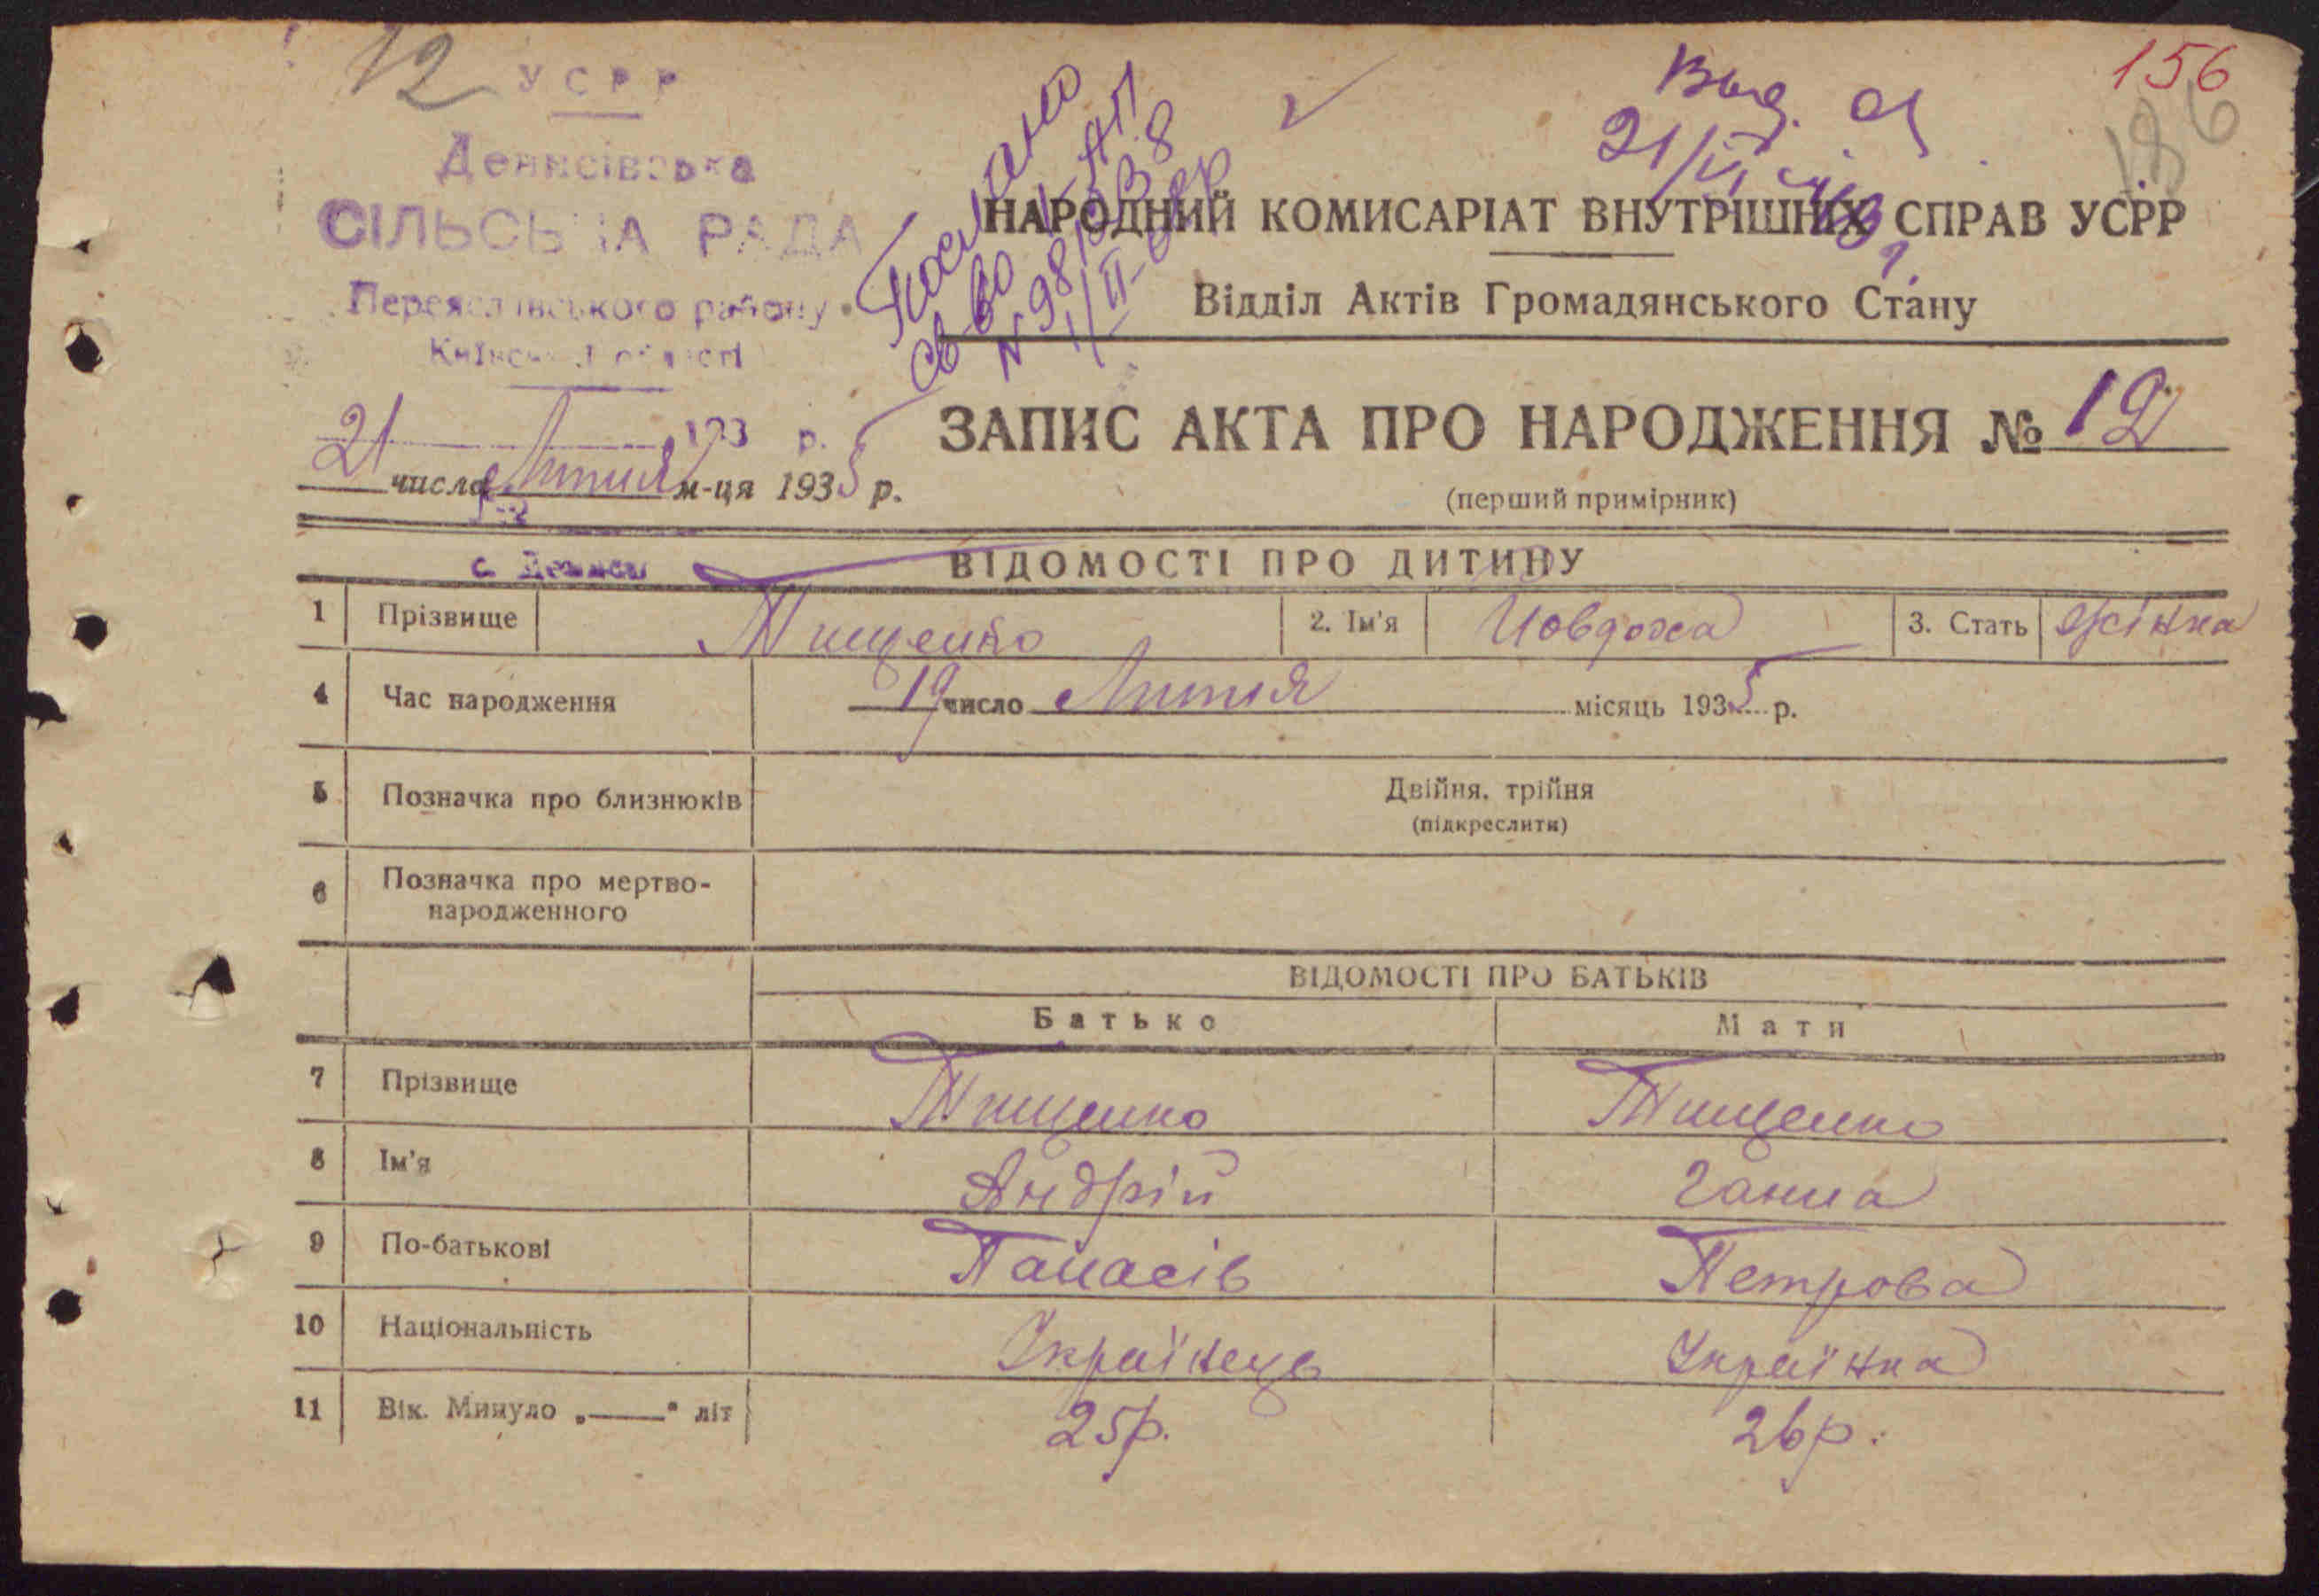 12
УСРР
156
186
Денисівська
СІЛЬСЬКА РАДА
Переяслівського району
Київської області
193 р.
21 числа Лютня м-ця 1935 р.
с. Дениси
НАРОДНИЙ КОМИСАРІАТ ВНУТРІШНІХ СПРАВ УСРР
Відділ Актів Громадянського Стану
ЗАПИС АКТА ПРО НАРОДЖЕННЯ № 12
(перший примірник)
ВІДОМОСТІ ПРО ДИТИНУ
1 Прізвище Тищенко 2. Ім'я Йовдоха 3. Стать жінка
4 Час народження 19 число Лютня місяць 1935 р.
5 Позначка про близнюків Двійня, трійня
(підкреслити)
6 Позначка про мертво-
народженного
ВІДОМОСТІ ПРО БАТЬКІВ
Батько Мати
7 Прізвище Тищенко Тищенко
8 Ім'я Андрій Ганна
9 По-батькові Панасів Петрова
10 Національність Українець Українка
11 Вік. Минуло „——" літ 25р. 26р.